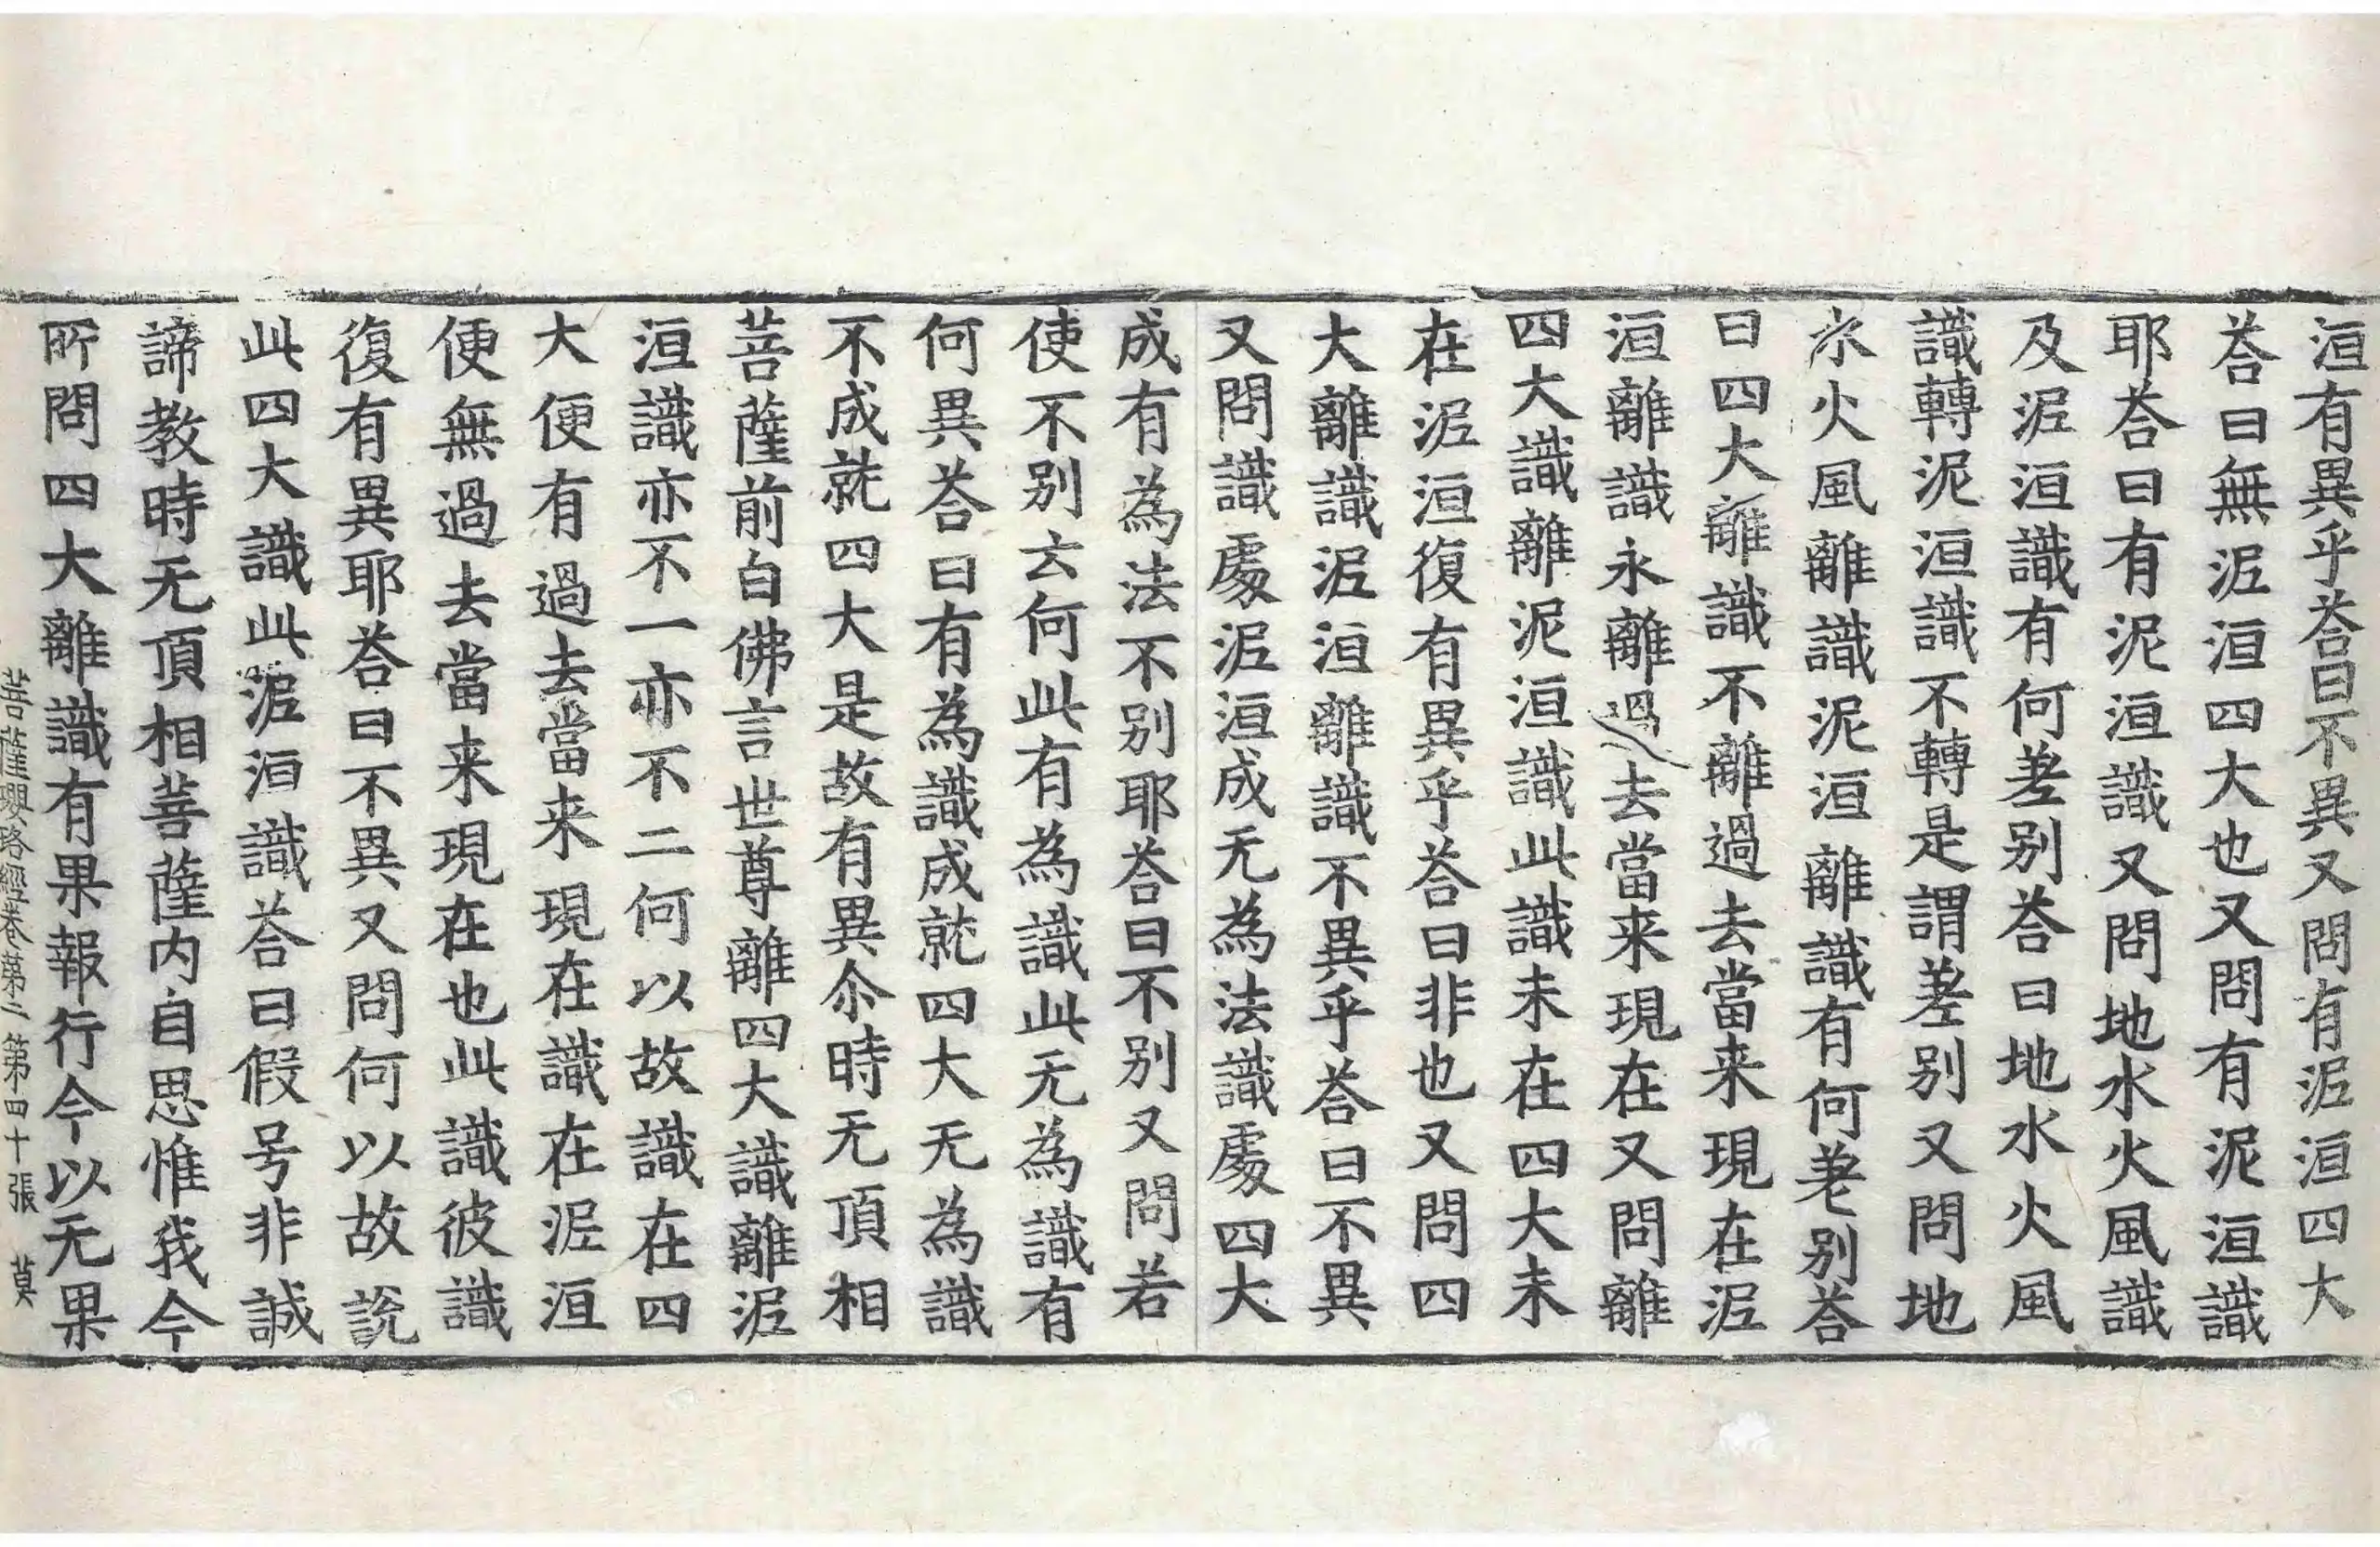 洹有異乎荅曰不異又問有泥洹四大
荅曰無泥洹四大也又問有泥洹識
耶荅曰有泥洹識又問地水火風識
及泥洹識有何差别荅曰地水火風
識轉泥洹識不轉是謂差别又問地
水火風離識泥洹離識有何差别荅
曰四大離識不離過去當来現在泥
洹離識永離過去當来現在又問離
四大識離泥洹識此識未在四大未
在泥洹復有異乎荅曰非也又問四
大離識泥洹離識不異乎荅曰不異
又問識處泥洹成无為法識處四大
成有為法不别耶荅曰不别又問若
使不别云何此有為識此无為識有
何異荅曰有為識成就四大无為識
不成就四大是故有異尒時无頂相
菩薩前白佛言世尊離四大識離泥
洹識亦不一亦不二何以故識在四
大便有過去當来現在識在泥洹
便無過去當来現在也此識彼識
復有異耶荅曰不異又問何以故說
此四大識此泥洹識荅曰假号非誠
諦教時无頂相菩薩内自思惟我今
所問四大離識有果報行今以无果
菩薩瓔珞經卷第二 第四十張 莫